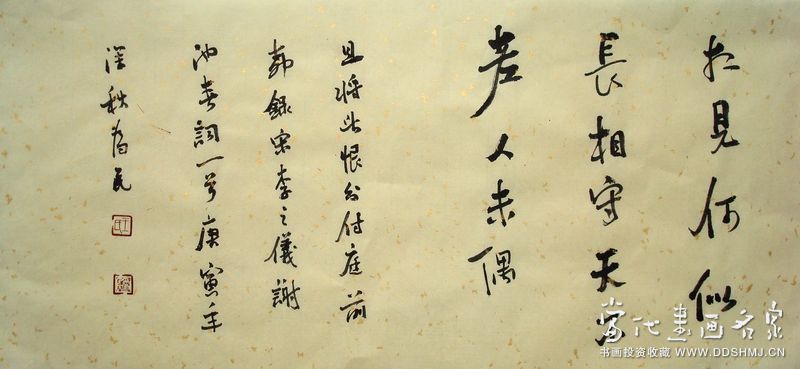 相見何似
長相守天不
老人未偶
且將此恨分付庭前
柳錄宋李之儀謝
池春詞一首庚寅年
深秋為民
當代書画名家
书画投资收藏 WWW.DDSHMJ.CN